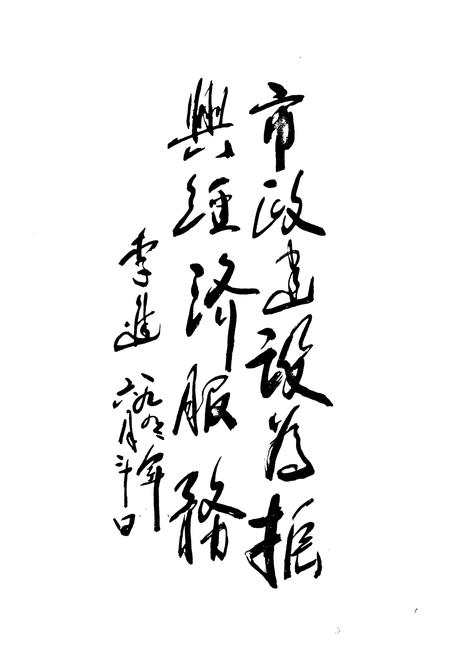 市政建设為振
興经济服務
李進
一九九年
六月廿日